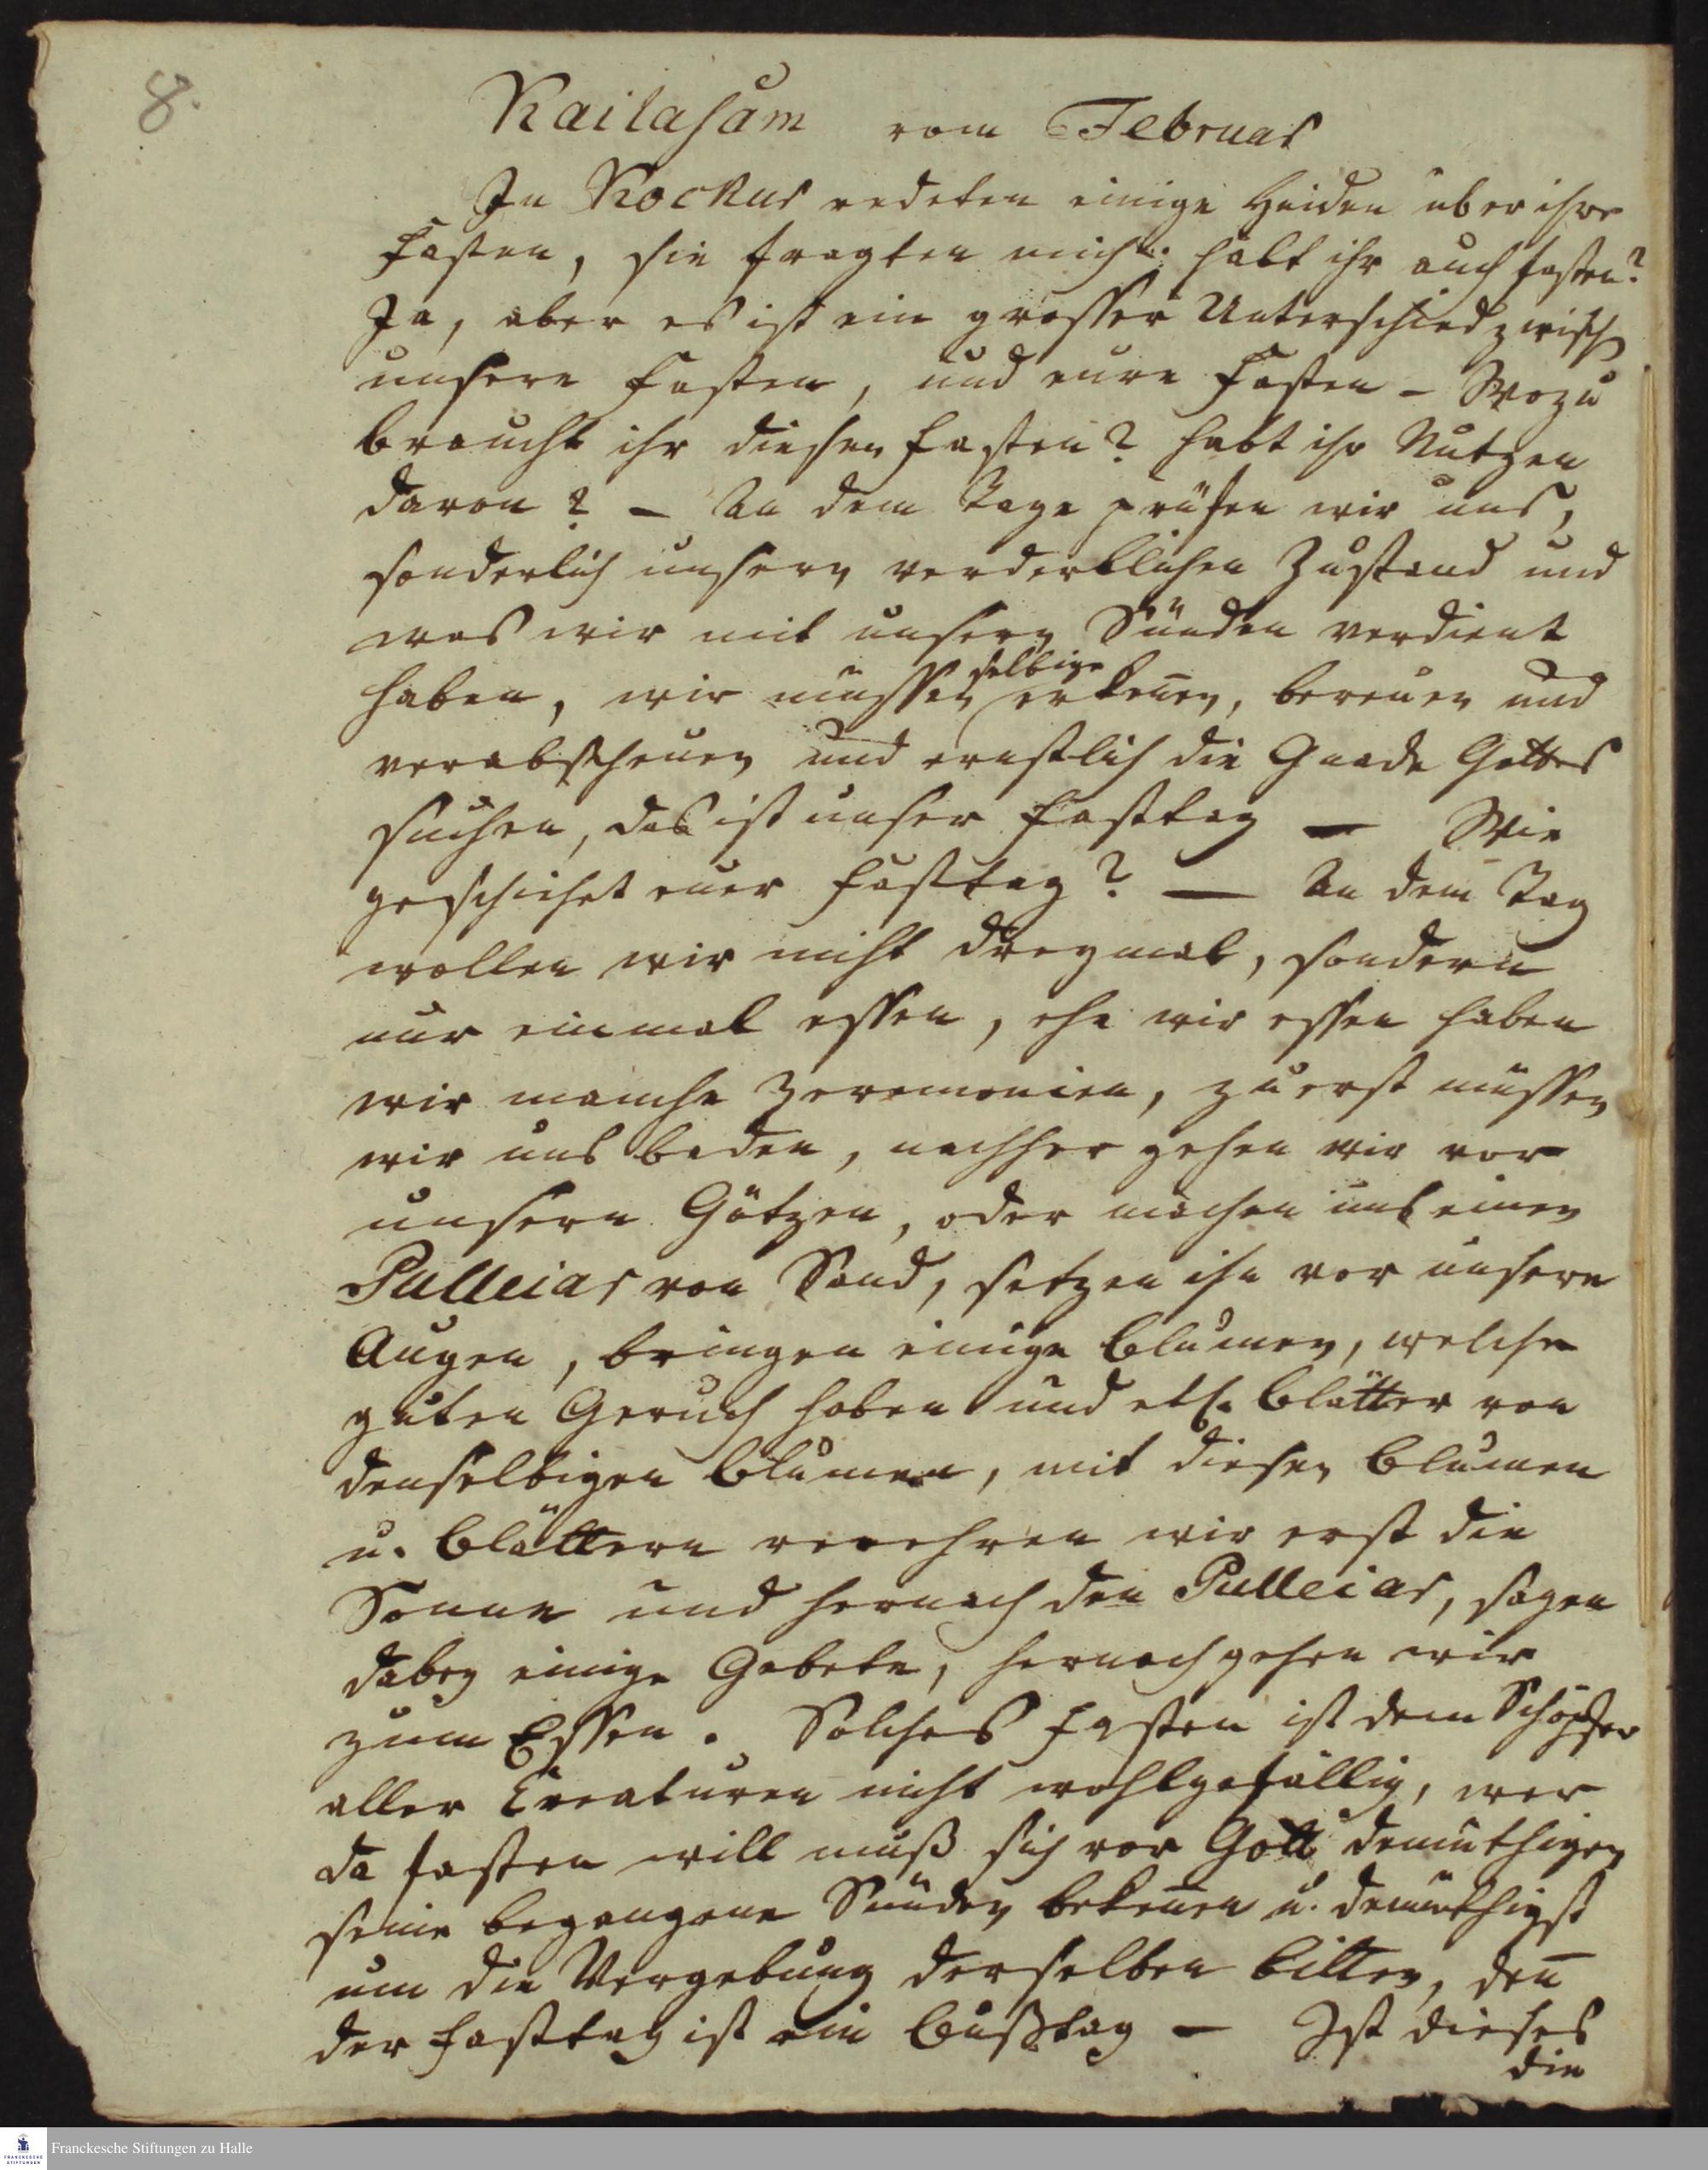 8.
Kailasam vom Februar
In Kockur redeten einige Heiden über ihre
Fasten, sie fragten mich: habt ihr auch fasten?
Ja, aber es ist ein grosser Unterschied zwisch
unsere Fasten, und eure Fasten – Wozu
braucht ihr diesen fasten? habt ihr Nutzen
davon? – An dem Tage prüfen wir uns,
sonderlich unsern verderblichen Zustand und
was wir mit unsern Sünden verdient
haben, wir müssen selbige erkeñen, bereuen und
verabscheuen und ernstlich die Gnade Gottes
suchen, das ist unser Fasttag – Wie
geschiehet euer Fasttag? – An dem Tag
wollen wir nicht dreymal, sondern
nur einmal essen, ehe wir essen haben
wir manche Zeremonien, zuerst müssen
wir uns baden, nachher gehen wir vor
unsern Götzen, oder machen uns einen
Pulleiar von Sand, setzen ihn vor unsere
Augen, bringen einige Blumen, welche
guten Geruch haben und etl. Blätter von
denselbigen Blumen, mit diesen Blumen
u. Blättern verehren wir erst die
Sonne und hernach den Pulleiar, sagen
dabey einige Gebete, hernach gehen wir
zum Essen. Solches Fasten ist dem Schöpfer
aller Creaturen nicht wohlgefällig, wer
da fasten will muß sich vor Gott demüthigen
seine begangene Sünden bekeñen u. demüthigst
um die Vergebung derselben bitten, deñ
der Fasttag ist ein Bußtag – Ist dieses
die
Franckesche Stiftungen zu Halle
FRANCKESCHE
STIFTUNGEN